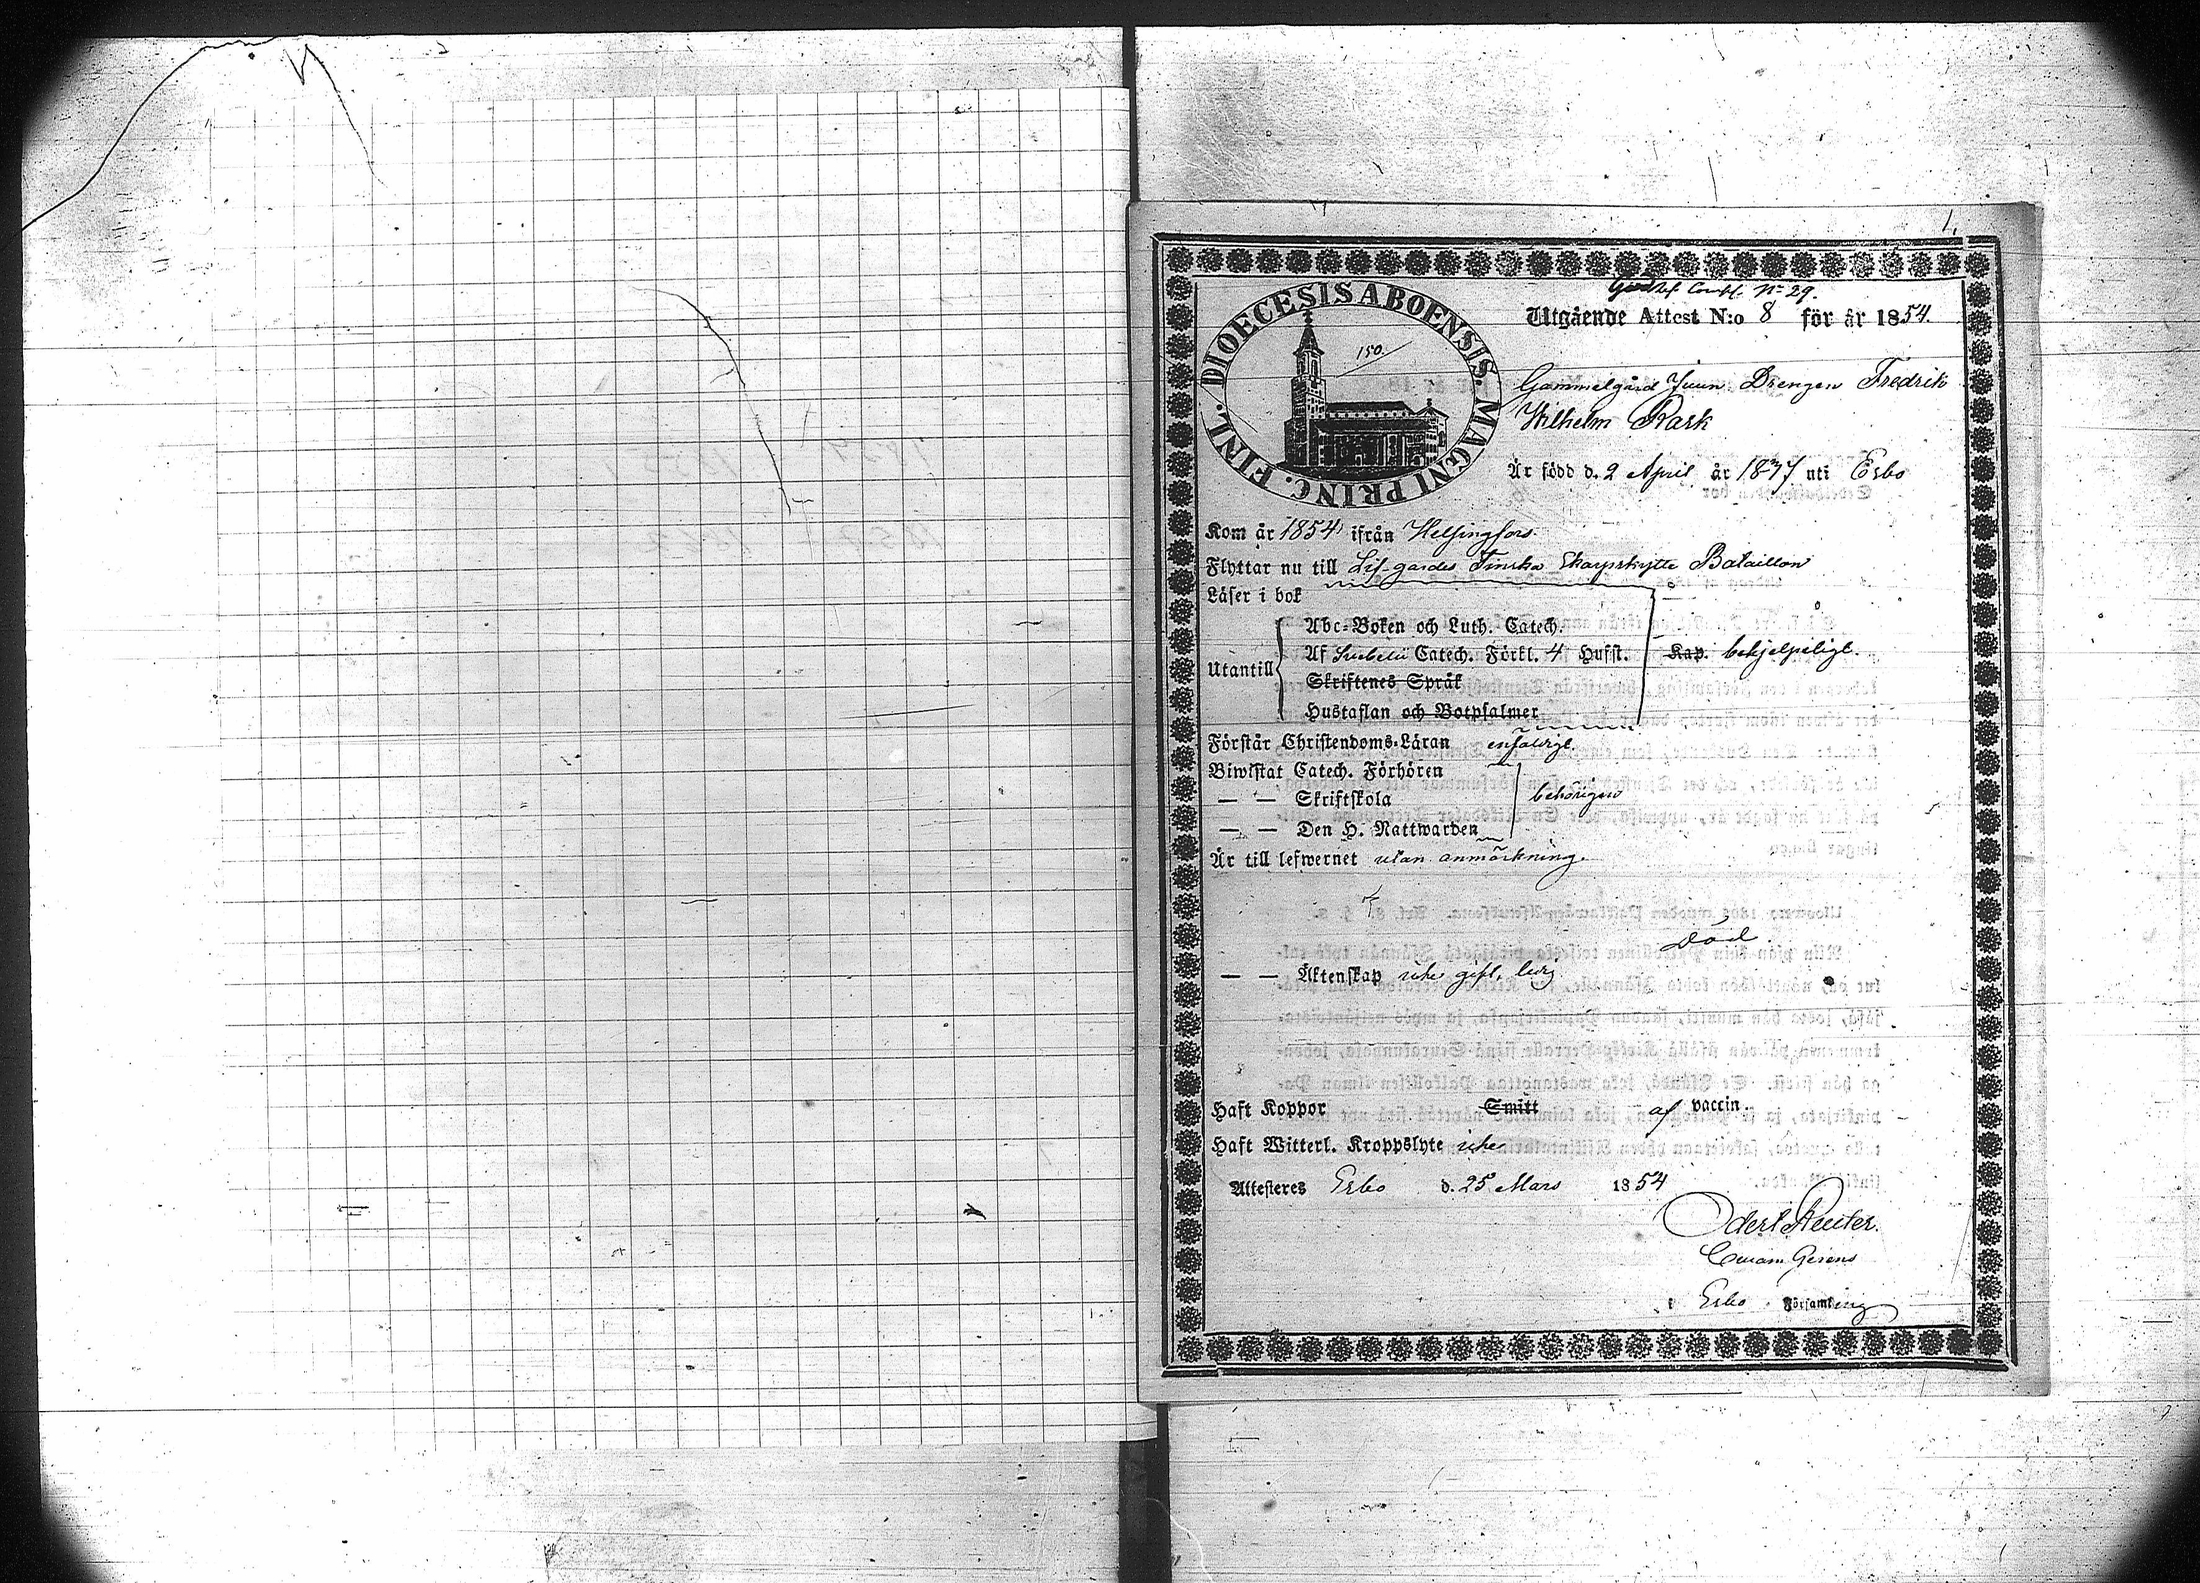 1.
Comp. No 29.
Utgående Attest N:o 8 för år 1854.
DIOECESIS ABOENSIS. MAGNI PRINC. FINL.
150.
Gammelgård Drengen Fredrik
Wilhelm Rask
Är född d. 2 April år 1837 uti Esbo
Kom år 1854 ifrån Helsingfors.
Flyttar nu till Lif-gardes Finska Skarpskytte Bataillon
Läser i bok
Abc-Boken och Luth. Catech.
Utantill Af Svebelii Catech. Förkl. 4 Hufst. Kap. behjelpeligt.
Skriftenes Språk
Hustaflan och Botpsalmer
Förstår Christendoms-Läran enfaldigt.
Biwistat Catech. Förhören
— — Skriftskola behörigen
— — Den H. Nattwarden
Är till lefwernet utan anmärkning.
Död
— — Äktenskap icke gift, ledig
Haft Koppor Smitt af vaccin.
Haft Witterl. Kroppslyte icke
Attesteres Esbo d. 25 Mars 1854
Odert Reuter.
Curam Gerens
i Esbo Församling